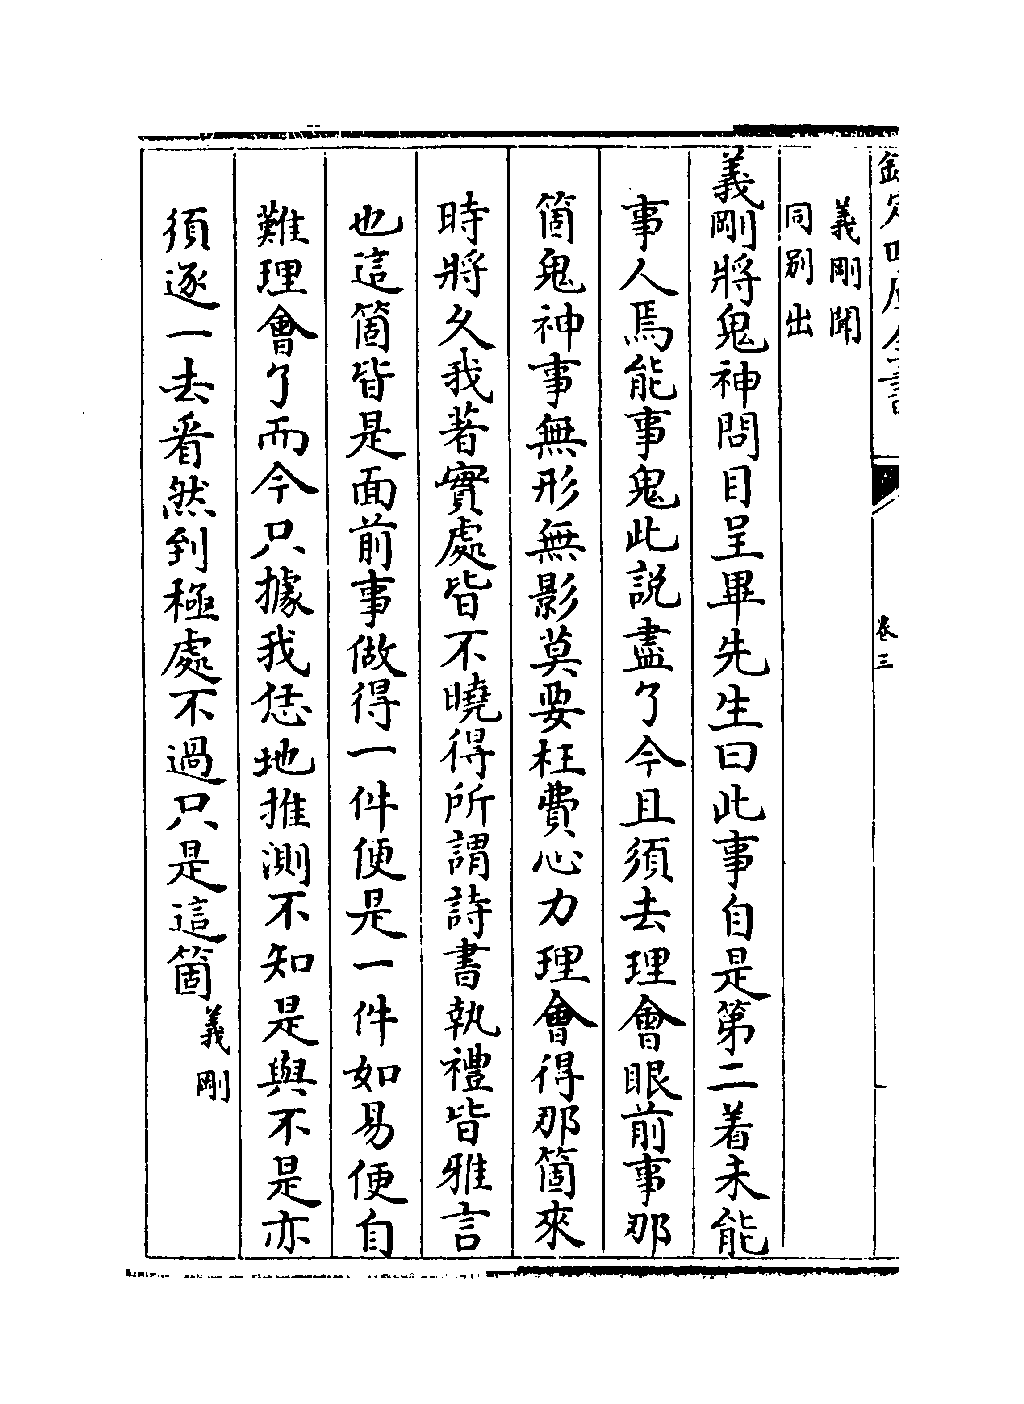 欽定四庫全書
卷三
義剛聞
同別出
義剛將鬼神問目呈畢先生曰此事自是第二着未能
事人焉能事鬼此説盡了今且須去理會眼前事那
箇鬼神事無形無影莫要枉費心力理會得那箇來
時將久我著實處皆不曉得所謂詩書執禮皆雅言
也這箇皆是面前事做得一件便是一件如易便自
難理會了而今只據我恁地推測不知是與不是亦
須逐一去看然到極處不過只是這箇義剛